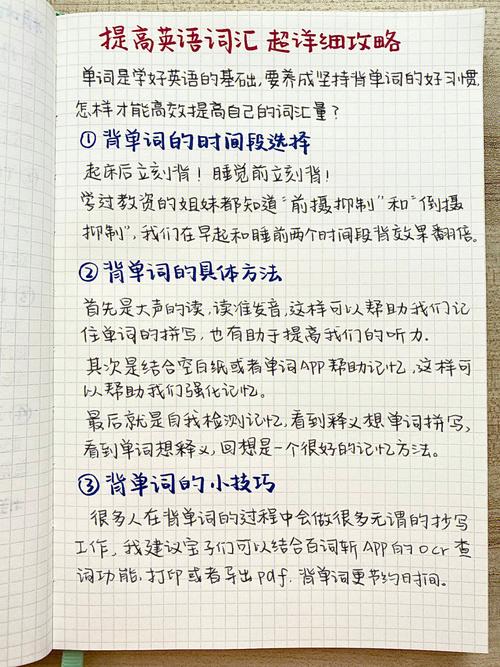 提高英语词汇 超详细攻略
单词是学好英语的基础,要养成坚持背单词的好习惯,
怎样才能高效提高自己的词汇量?
① 背单词的时间段选择
起床后立刻背!睡觉前立刻背!
学过教资的姐妹都知道"前摄抑制"和"倒摄
抑制",我们在早起和睡前两个时间段背效果翻倍。
② 背单词的具体方法
首先是大声的读,读准发音,这样可以帮助我们记
住单词的拼写,也有助于提高我们的听力.
其次是结合空白纸或者单词APP帮助记忆,这样可
以帮助我们强化记忆。
最后就是自我检测记忆,看到释义想单词拼写,
看到单词想释义,回想是一个很好的记忆方法。
③ 背单词的小技巧
很多人在背单词的过程中会做很多无谓的抄写
工作,我建议宝子们可以结合百词斩APP的ocr查
词功能,打印或者导出pdf.背单词更节约时间.